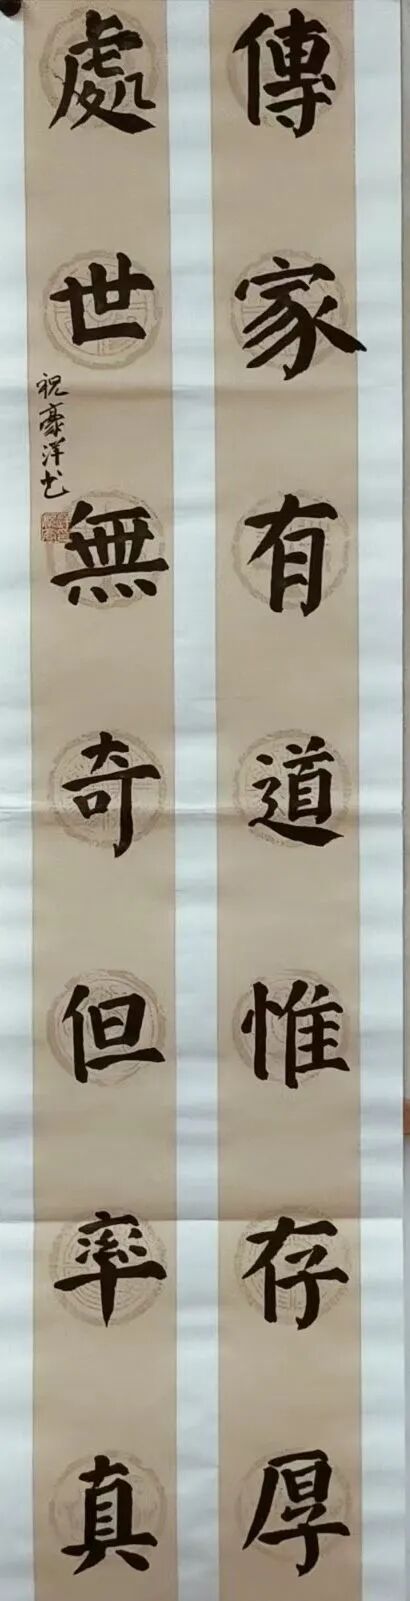 傳家有道惟存厚
處世無奇但率真
祝豪洋书